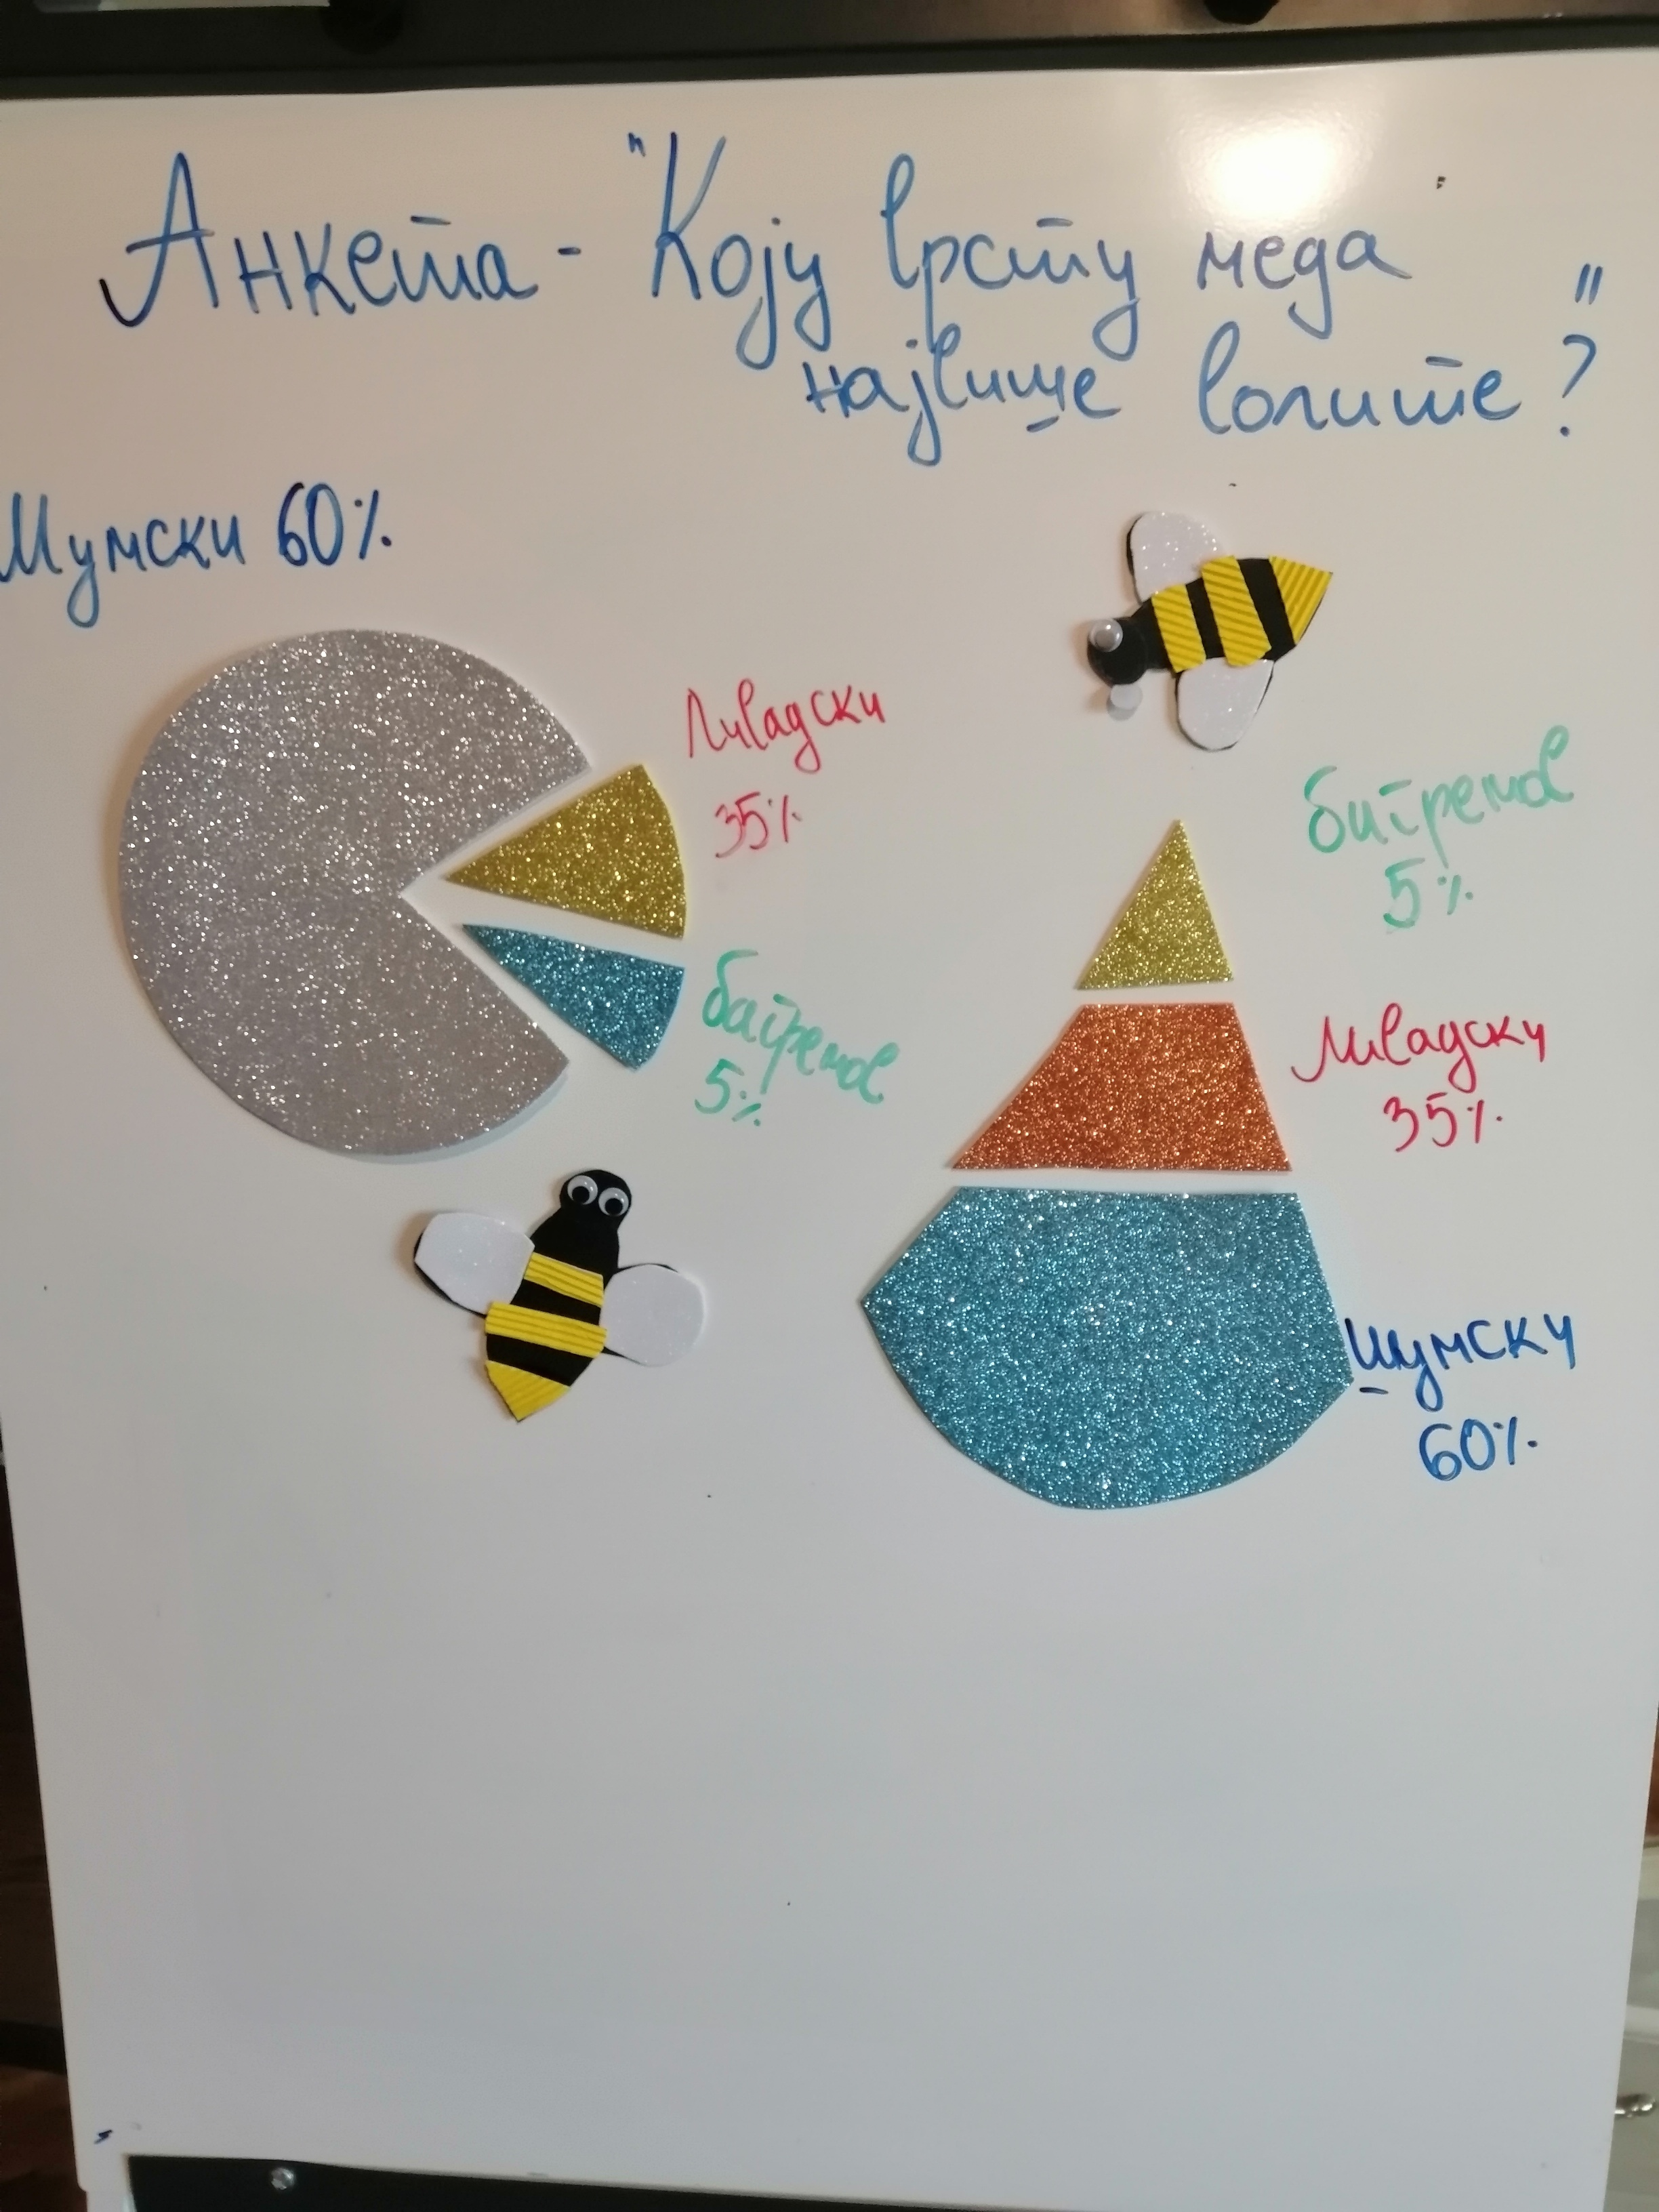 Анкета - "Коју врсту меда
највише волите?"
Шумски 60%
Ливадски
35%
багремов
5%
багремов
5%
Ливадски
35%
шумски
60%